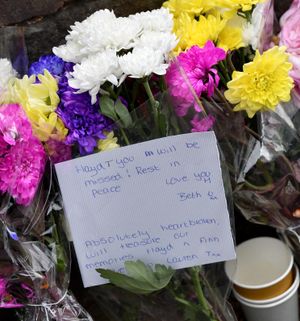 Haydn you will be
missed! Rest in
peace
Love you
Beth xx
Absolutely heartbroken,
will treasure our
memories Haydn n Finn
Lauren xx